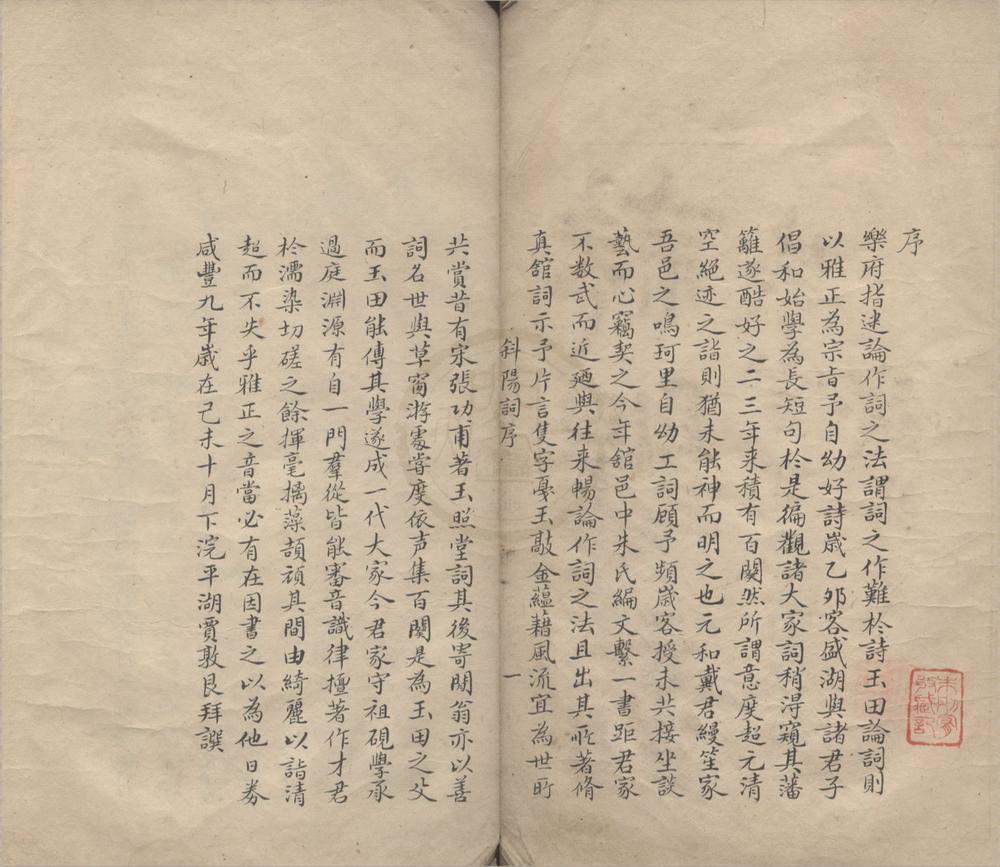 序
樂府指迷論作詞之法謂詞之作難於詩玉田論詞則
以雅正為宗旨予自幼好詩歲乙夘客盛湖與諸君子
倡和始學為長短句於是徧觀諸大家詞稍淂窺其藩
籬遂酷好之二三年来積有百闋然所謂意度超元清
空絕迹之詣則猶未能神而明之也元和戴君縵笙家
吾邑之鳴珂里自幼工詞顧予頻歲客授未共接坐談
藝而心竊契之今年舘邑中朱氏編文繫一書距君家
不数武而近廼與往来暢論作詞之法且出其所著脩
真舘詞示予片言隻字戞玉敲金蘊藉風流宜為世所
斜陽詞序
一
共賞昔有宋張功甫著玉照堂詞其後寄閒翁亦以善
詞名世與草窗游處嘗度依声集百闋是為玉田之父
而玉田能傳其學遂成一代大家今君家守祖硯學承
過庭淵源有自一門羣從皆能審音識律擅著作才君
於濡染切磋之餘揮毫摛藻頡頏其間由綺麗以詣清
超而不失乎雅正之音當必有在因書之以為他日券
咸豐九年歲在己未十月下浣平湖賈敦艮拜譔